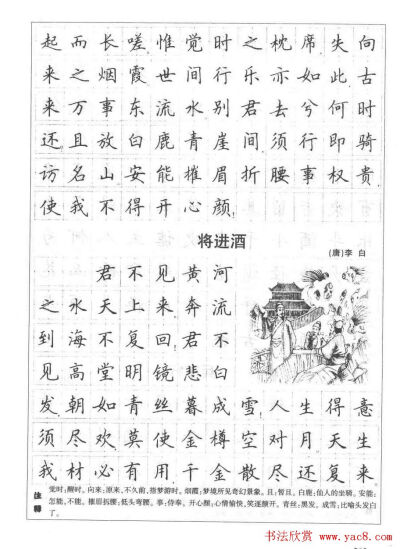 起而长嗟惟觉时之枕席失向
来之烟霞世间行乐亦如此古
来万事东流水别君去兮何时
还且放白鹿青崖间须行即骑
访名山安能摧眉折腰事权贵
使我不得开心颜
将进酒
(唐)李 白
君不见黄河
之水天上来奔流
到海不复回君不
见高堂明镜悲白
发朝如青丝暮成雪人生得意
须尽欢莫使金樽空对月天生
我材必有用千金散尽还复来
注释
觉时:醒时。向来:原来,不久前,指梦游时。烟霞:梦境所见奇幻景象。且:暂且。白鹿:仙人的坐骑。安能:
怎能,不能。摧眉折腰:低头弯腰。事:侍奉。开心颜:心情愉快,笑逐颜开。青丝:黑发。成雪:比喻头发白
了。
书法欣赏 www.yac8.com